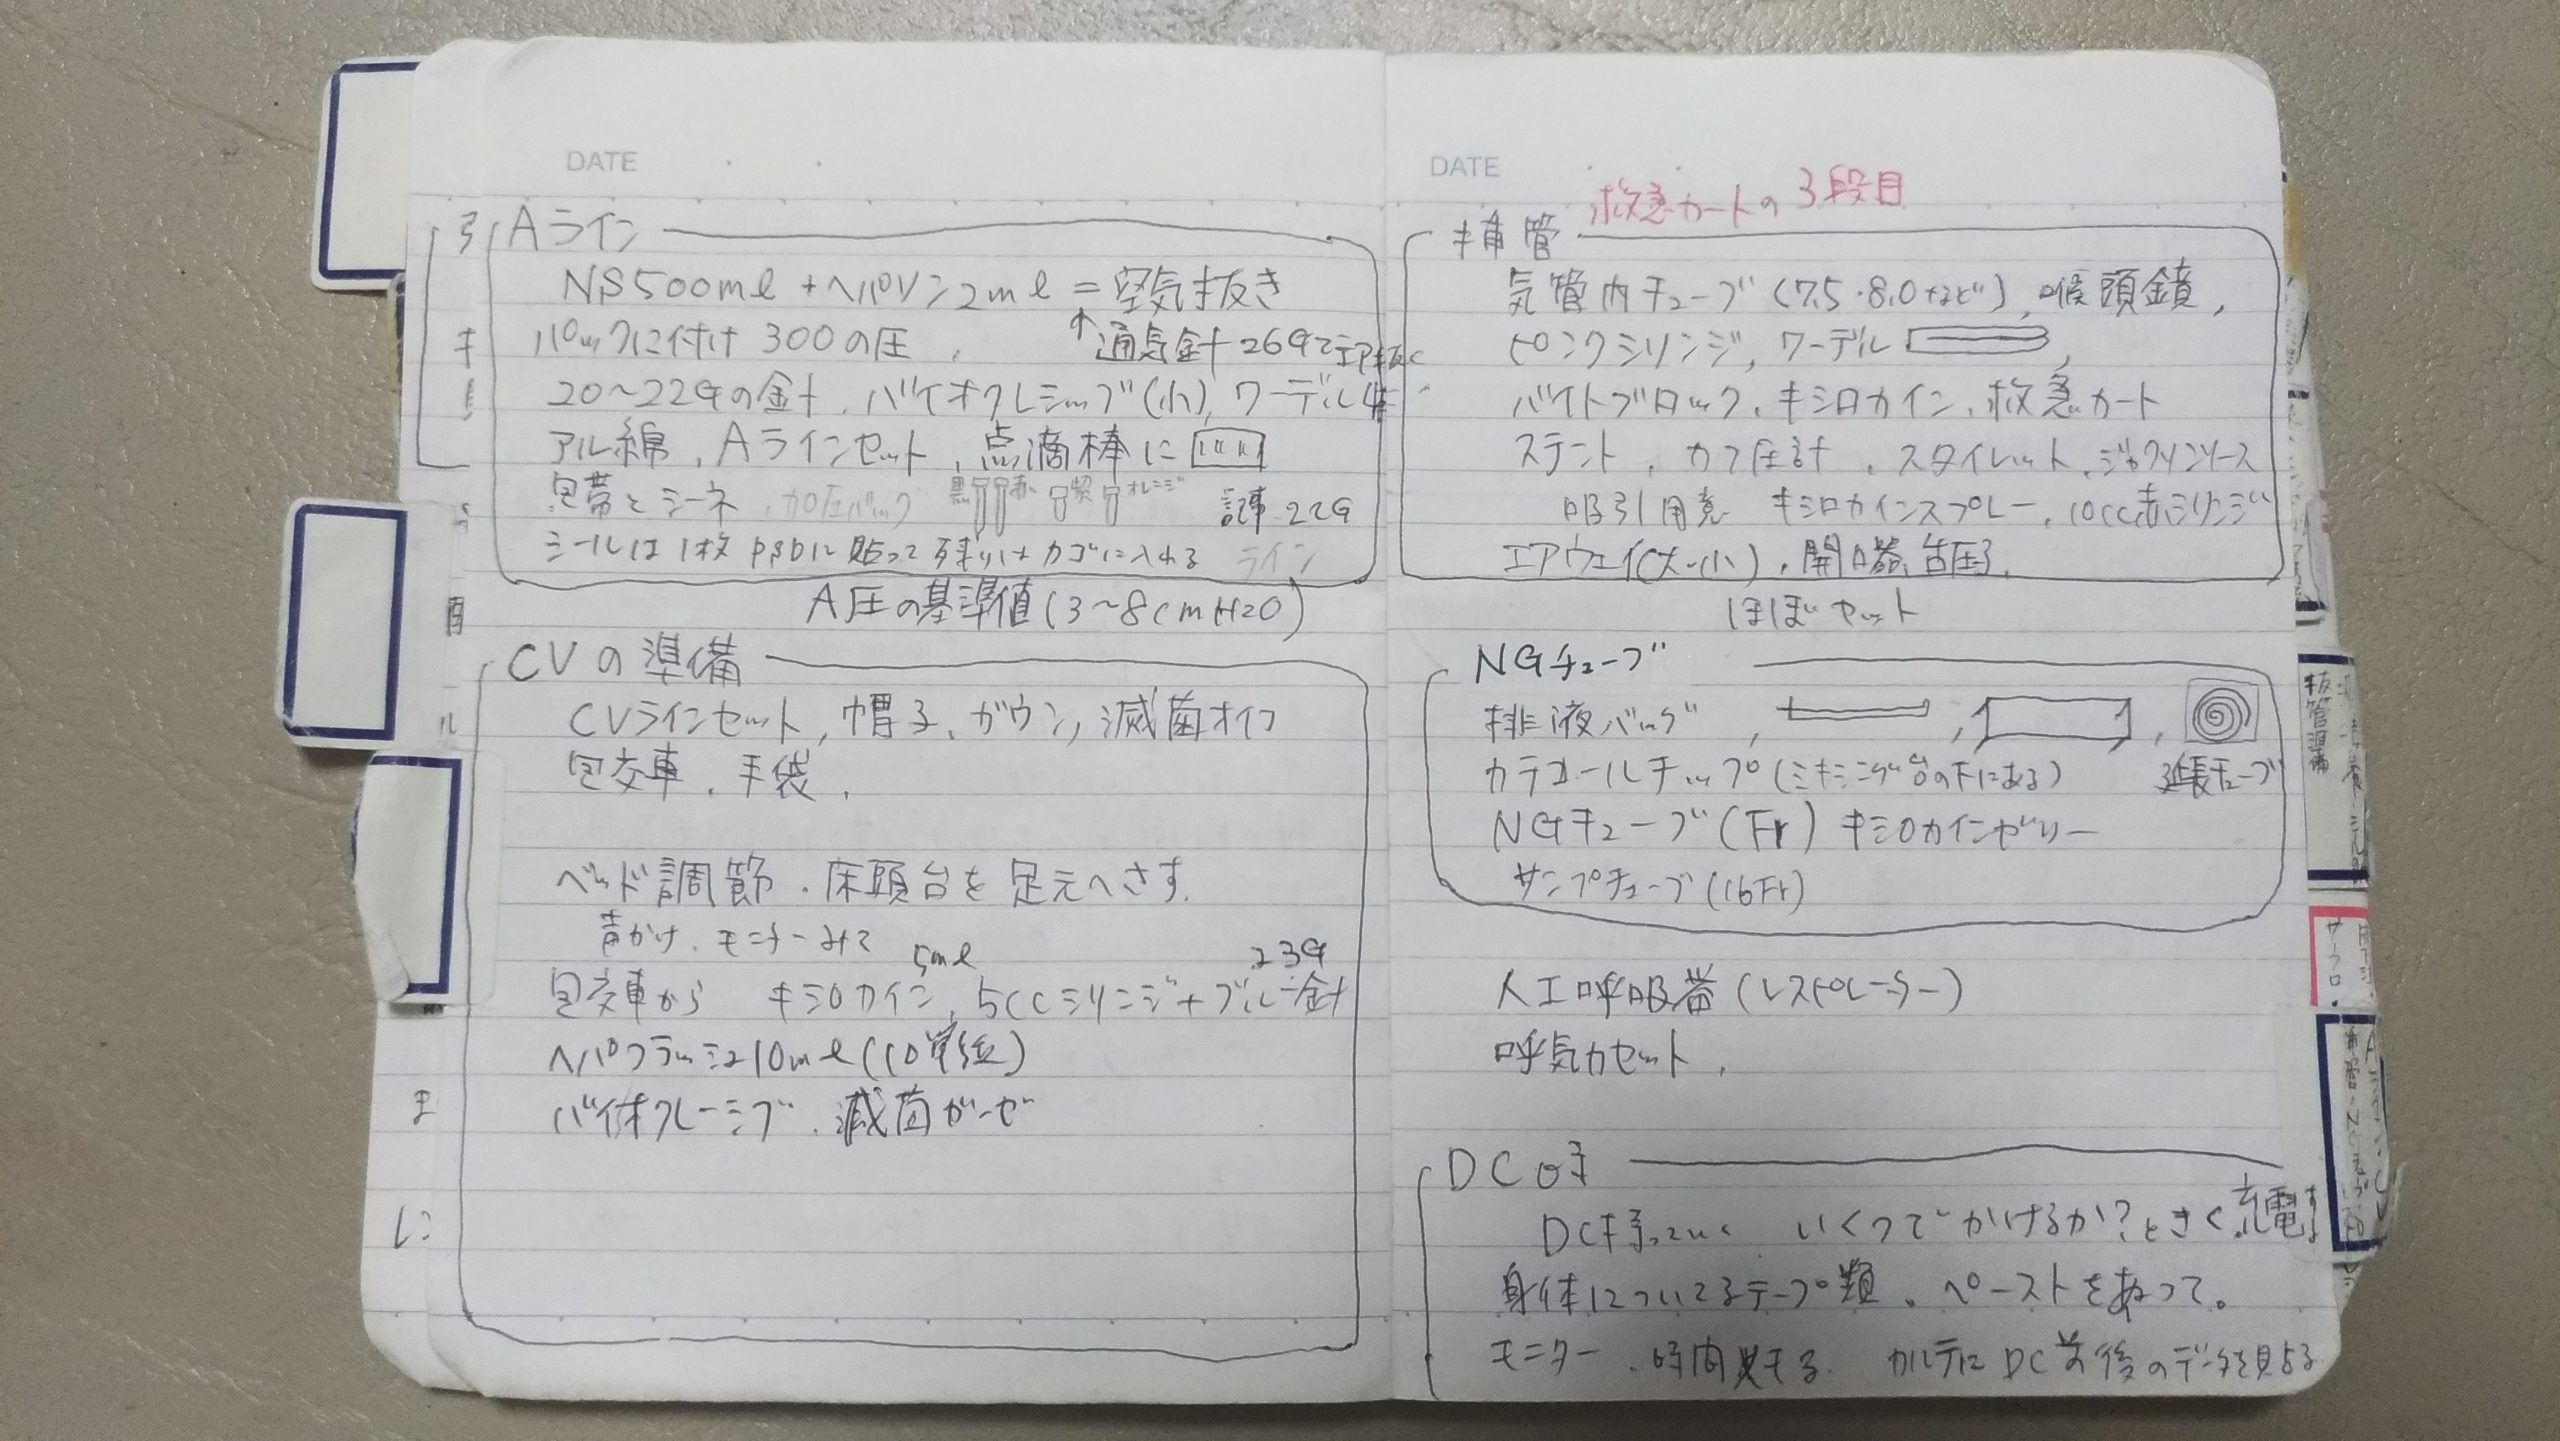 DATE
Aライン
NS500ml + ヘパリン2ml = 空気抜き
パックに付け 300の圧、 ↑通気針26Gでエア抜く
20~22Gの針、バイオクレシッブ(小)、ワーデル
アル綿、Aラインセット、点滴棒に
包帯とシーネ、加圧バック 黒 赤 紫 オレンジ 22G
シールは1枚 に貼って残りはカゴに入れる ライン
A圧の基準値(3~8cmH2O)
CVの準備
CVラインセット、帽子、ガウン、滅菌オイフ
包交車、手袋、
ベッド調節、床頭台を足元へさす。
声かけ、モニターみて
5ml 23G
包交車から キシロカイン、5ccシリンジ+ブルー針
ヘパフラッシュ10ml(10単位)
バイオクレーシブ、滅菌ガーゼ
DATE
救急カートの3段目
挿管
気管内チューブ(7.5・8.0など)、喉頭鏡、
ピンクシリンジ、ワーデル 、
バイトブロック、キシロカイン、救急カート
ステント、カフ圧計、スタイレット、
吸引用意 キシロカインスプレー、10cc シリンジ
エアウェイ(大・小)、開口器、舌圧子、
ほぼセット
NGチューブ
排液バッグ 、 、 、
カテコールチップ( 台の下にある) 延長チューブ
NGチューブ(Fr) キシロカインゼリー
サンプチューブ(16Fr)
人工呼吸器(レスピレーター)
呼気カセット、
DC時
DC持っていく いくつでかけるか?ときく 充電する
身体についてるテープ類、ペーストをぬって。
モニター、時間 カルテに DC前後のデータを見る
抜管準備
サーフロ・